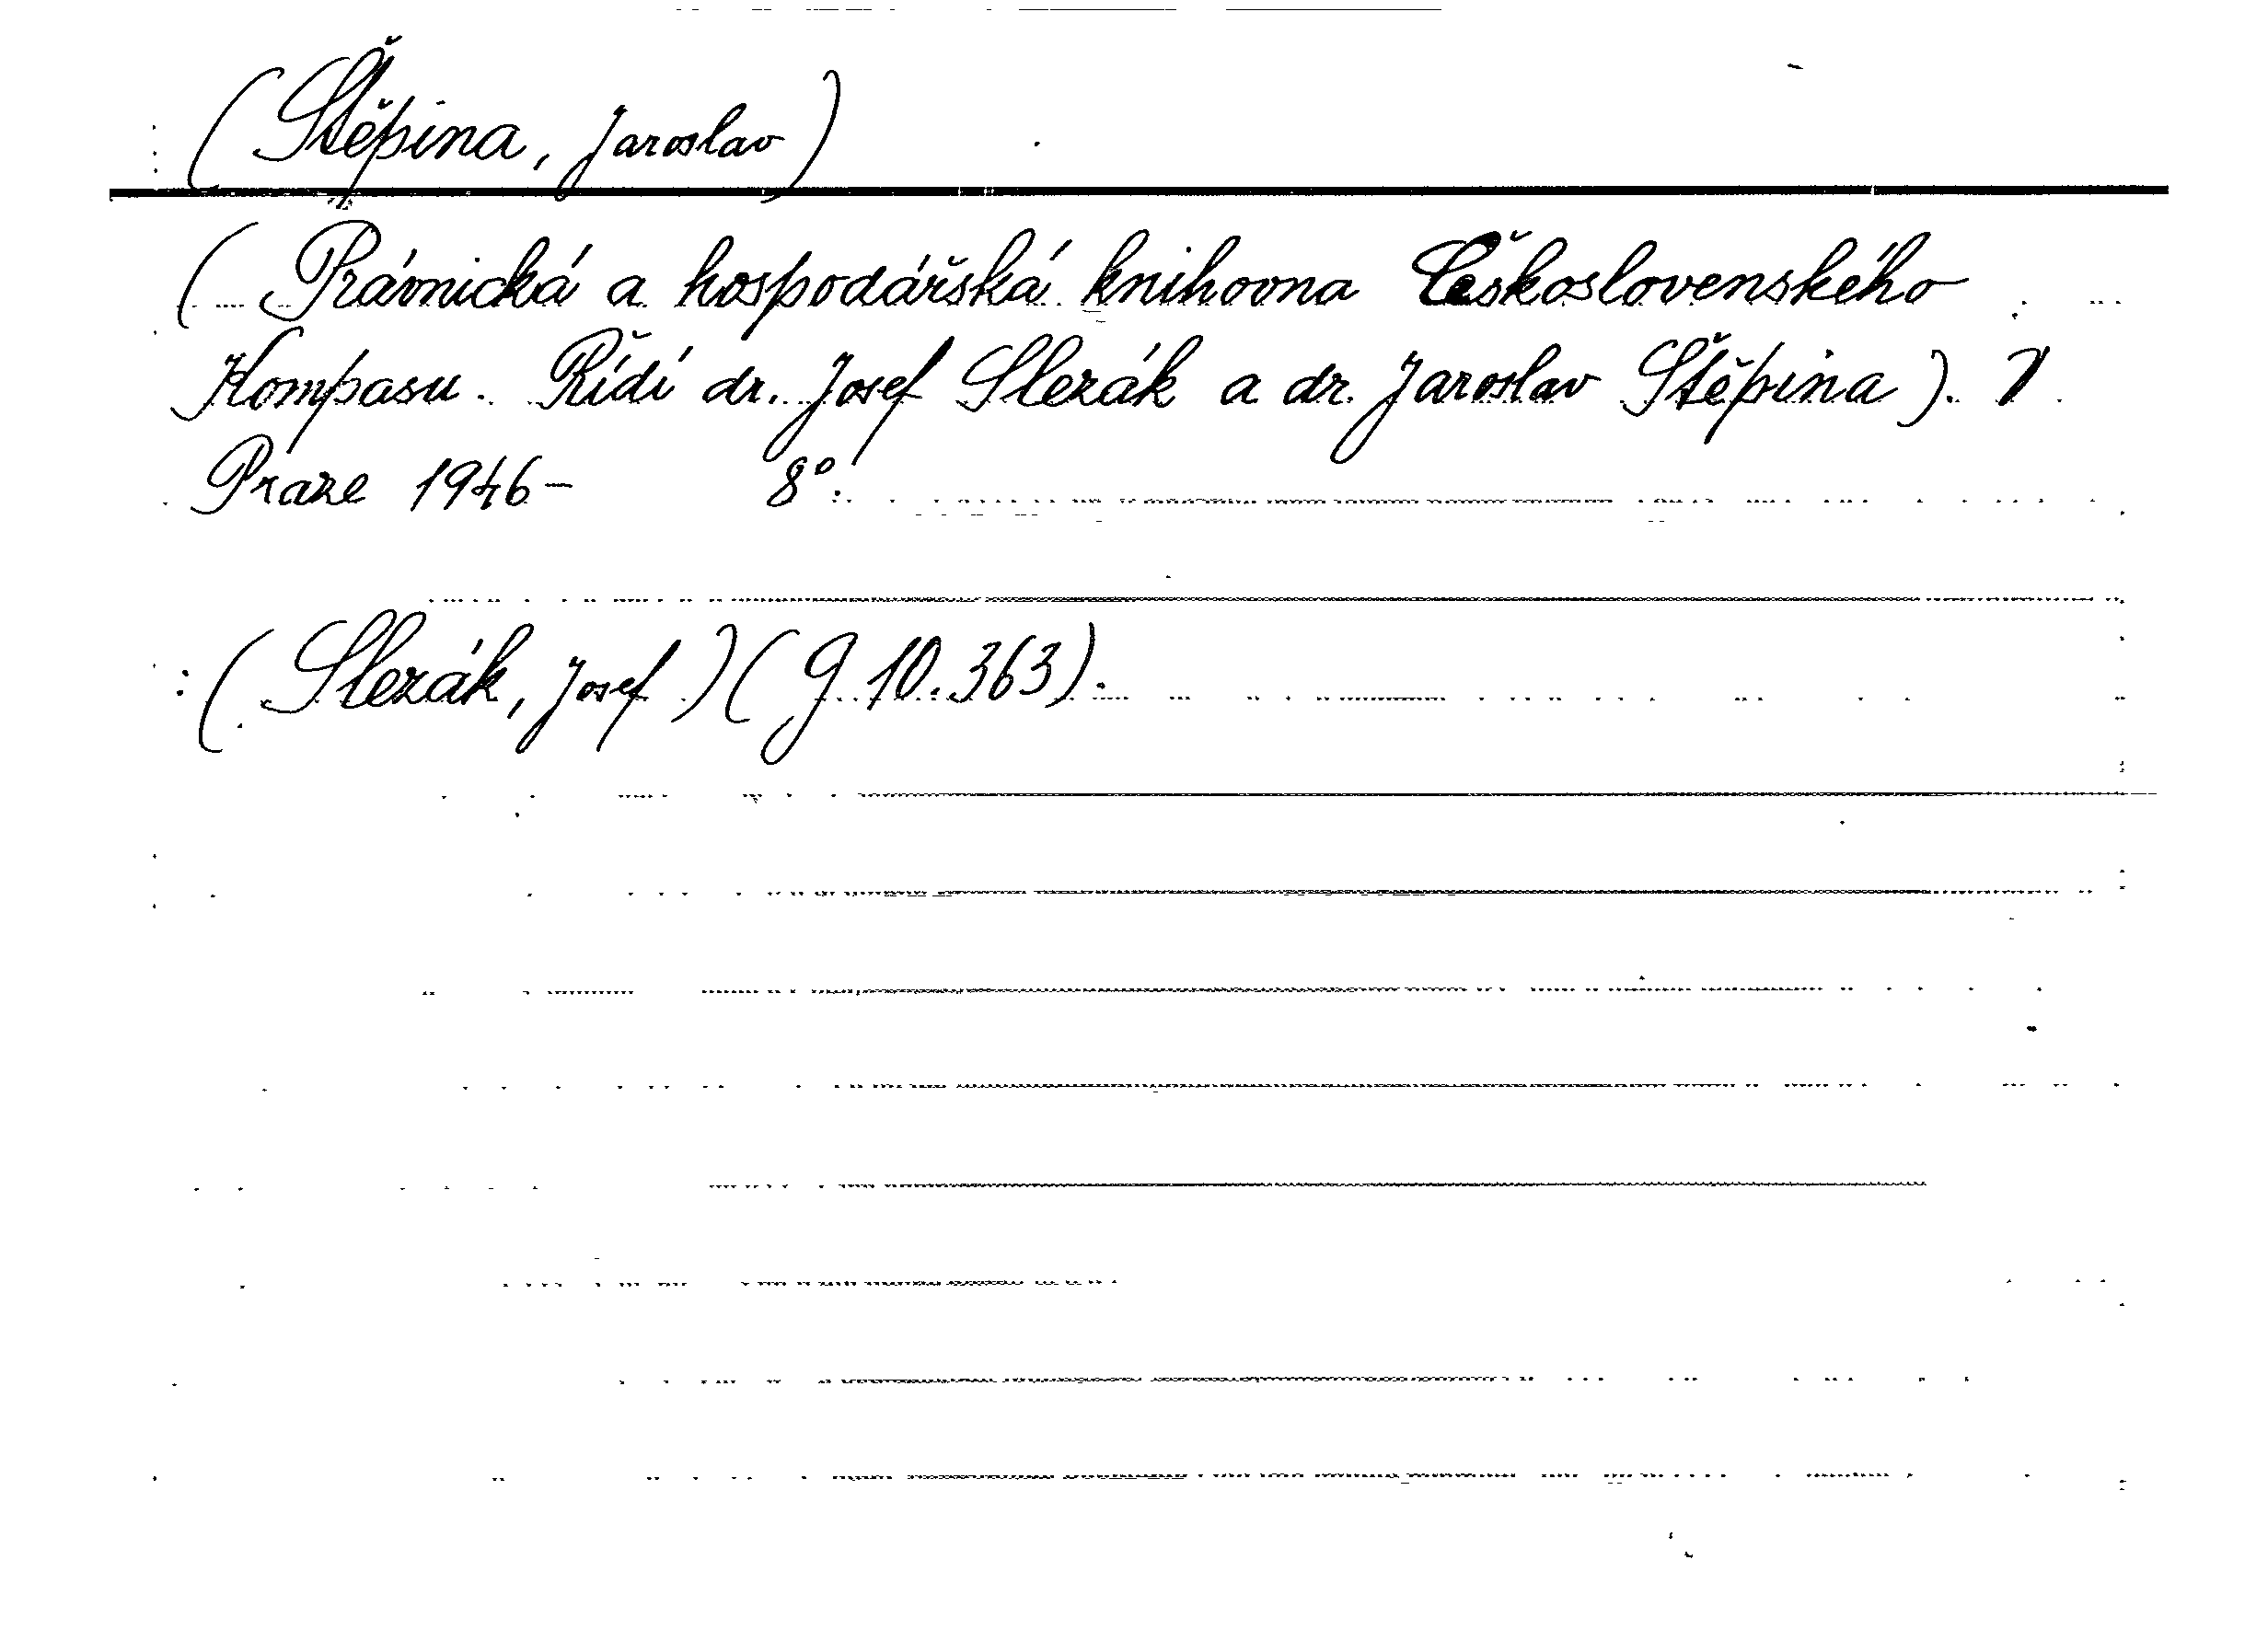 (Štěpina, Jaroslav)
(Právnická a hospodářská knihovna Československého
Kompasu. Řídí dr. Josef Slezák a dr. Jaroslav Štěpina). V
Praze 1946- 8°.
: (Slezák, Josef)(g 10.363).